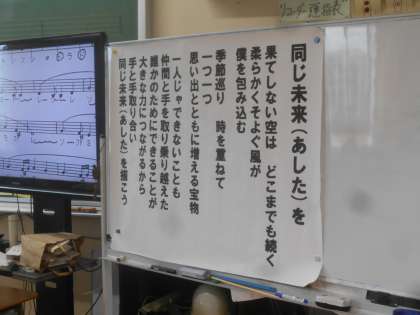 同じ未来(あした)を
果てしない空は　どこまでも続く
柔らかくそよぐ風が
僕を包み込む
季節巡り　時を重ねて
一つ一つ
思い出とともに増える宝物
一人じゃできないことも
仲間と手を取り乗り越えた
誰かのためにできることが
大きな力につながるから
手と手取り合い
同じ未来(あした)を描こう
リコーダー運指表